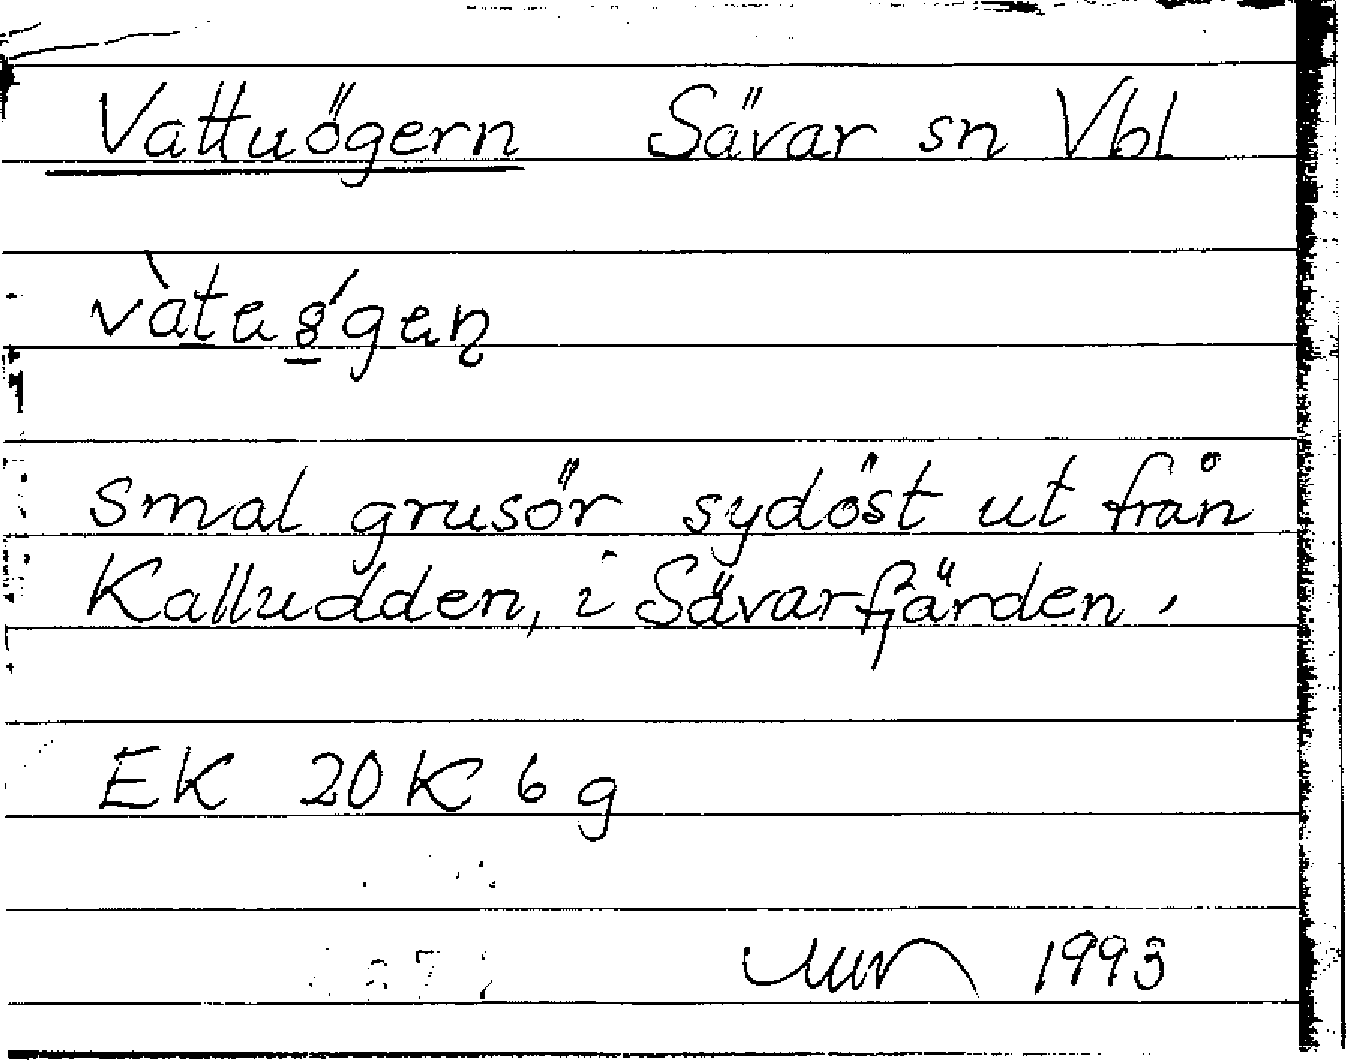 Vattuögern Sävar sn Vbl
Smal grusör sydöst ut från
Kalludden, i Sävarfjärden.
EK 20K 6g
1993